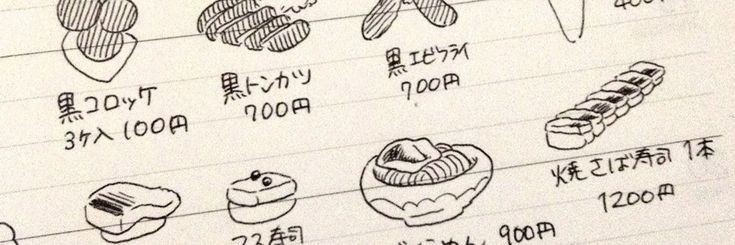 400円
黒コロッケ
3ケ入 100円
黒トンカツ
700円
黒エビフライ
700円
焼さば寿司 1本
1200円
マス寿司
900円